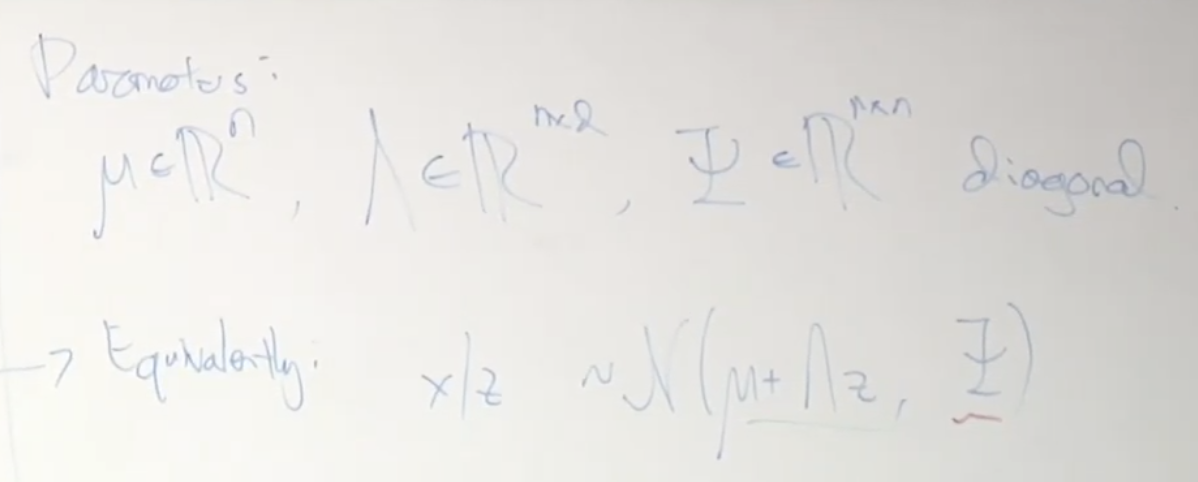 Parameters:
μ ∈ ℝⁿ, Λ ∈ ℝⁿˣᵈ, Ψ ∈ ℝⁿˣⁿ diagonal.
→ Equivalently: x|z ~ N(μ + Λz, Ψ)